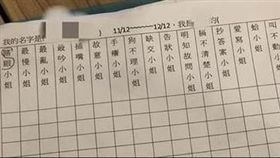 我的名字是( ) 11/12~~~~~~12/12，我是 的(
小姐
最慢小姐
最亂小姐
最吵小姐
插嘴小姐
故意小姐
手癢小姐
狗不理小姐
缺交小姐
告狀小姐
明知故問小姐
搞不清楚小姐
抄答案小姐
愛寫小姐
蛤小姐